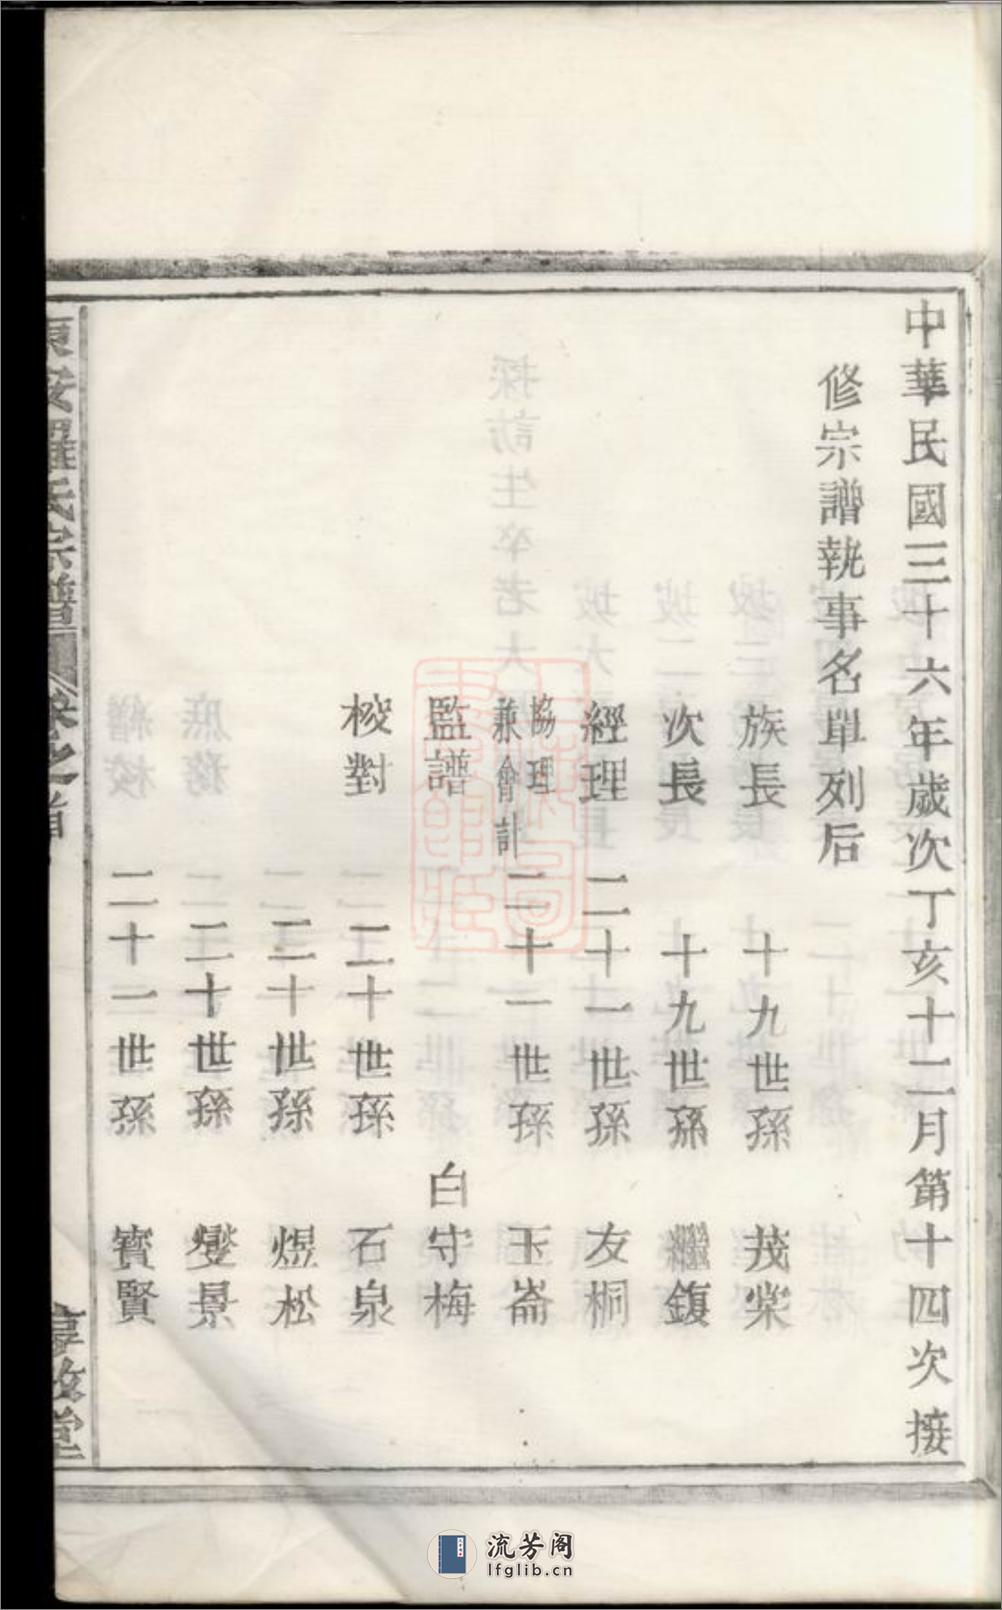 中華民國三十六年歲次丁亥十二月第十四次接
修宗譜執事名單列后
族長 十九世孫 茂棠
次長 十九世孫 繼馥
經理 二十一世孫 友桐
協理兼會計 二十一世孫 玉崙
監譜 白守梅
校對 二十世孫 石泉
二十世孫 煜松
二十世孫 燮景
二十一世孫 賓賢
東安羅氏宗譜 卷之首 享敘堂
流芳阁
lfglib.cn